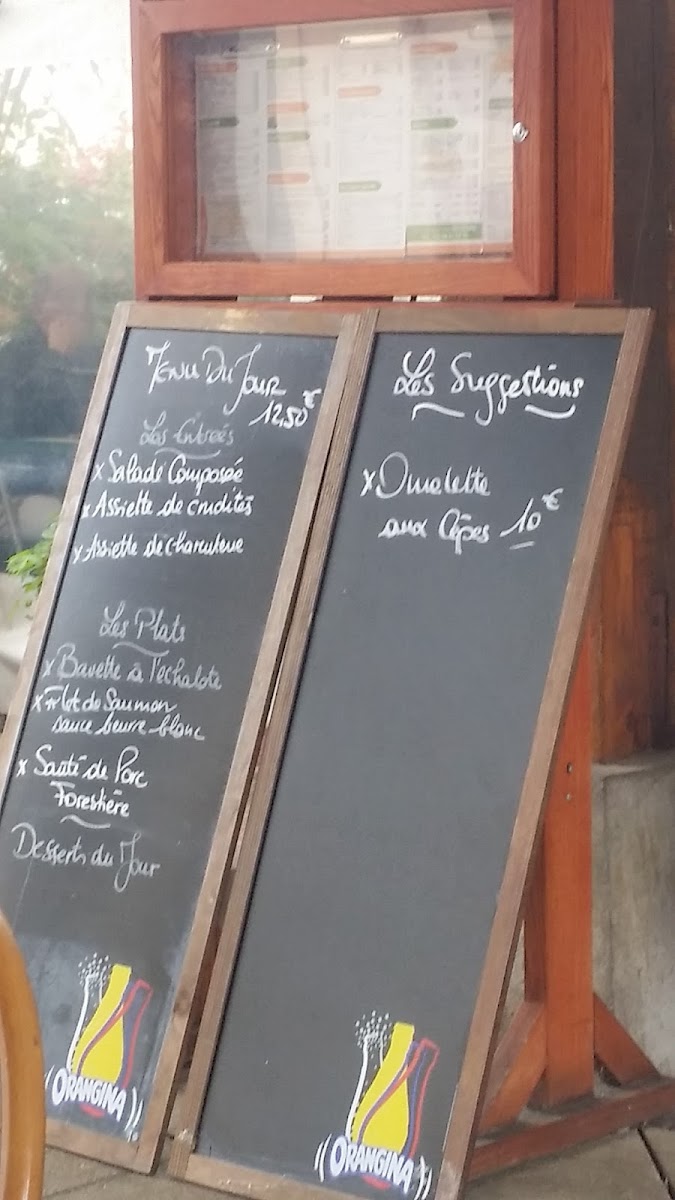 Menu Du Jour
12,50€
Les Entrées
x Salade Composée
x Assiette de crudités
x Assiette de charcuterie
Les Plats
x Bavette à l'echalote
x Filet de Saumon
sauce beurre blanc
x Sauté de Porc
Forestière
Desserts du Jour
ORANGINA
Les Suggestions
x Omelette
aux Cêpes 10€
ORANGINA